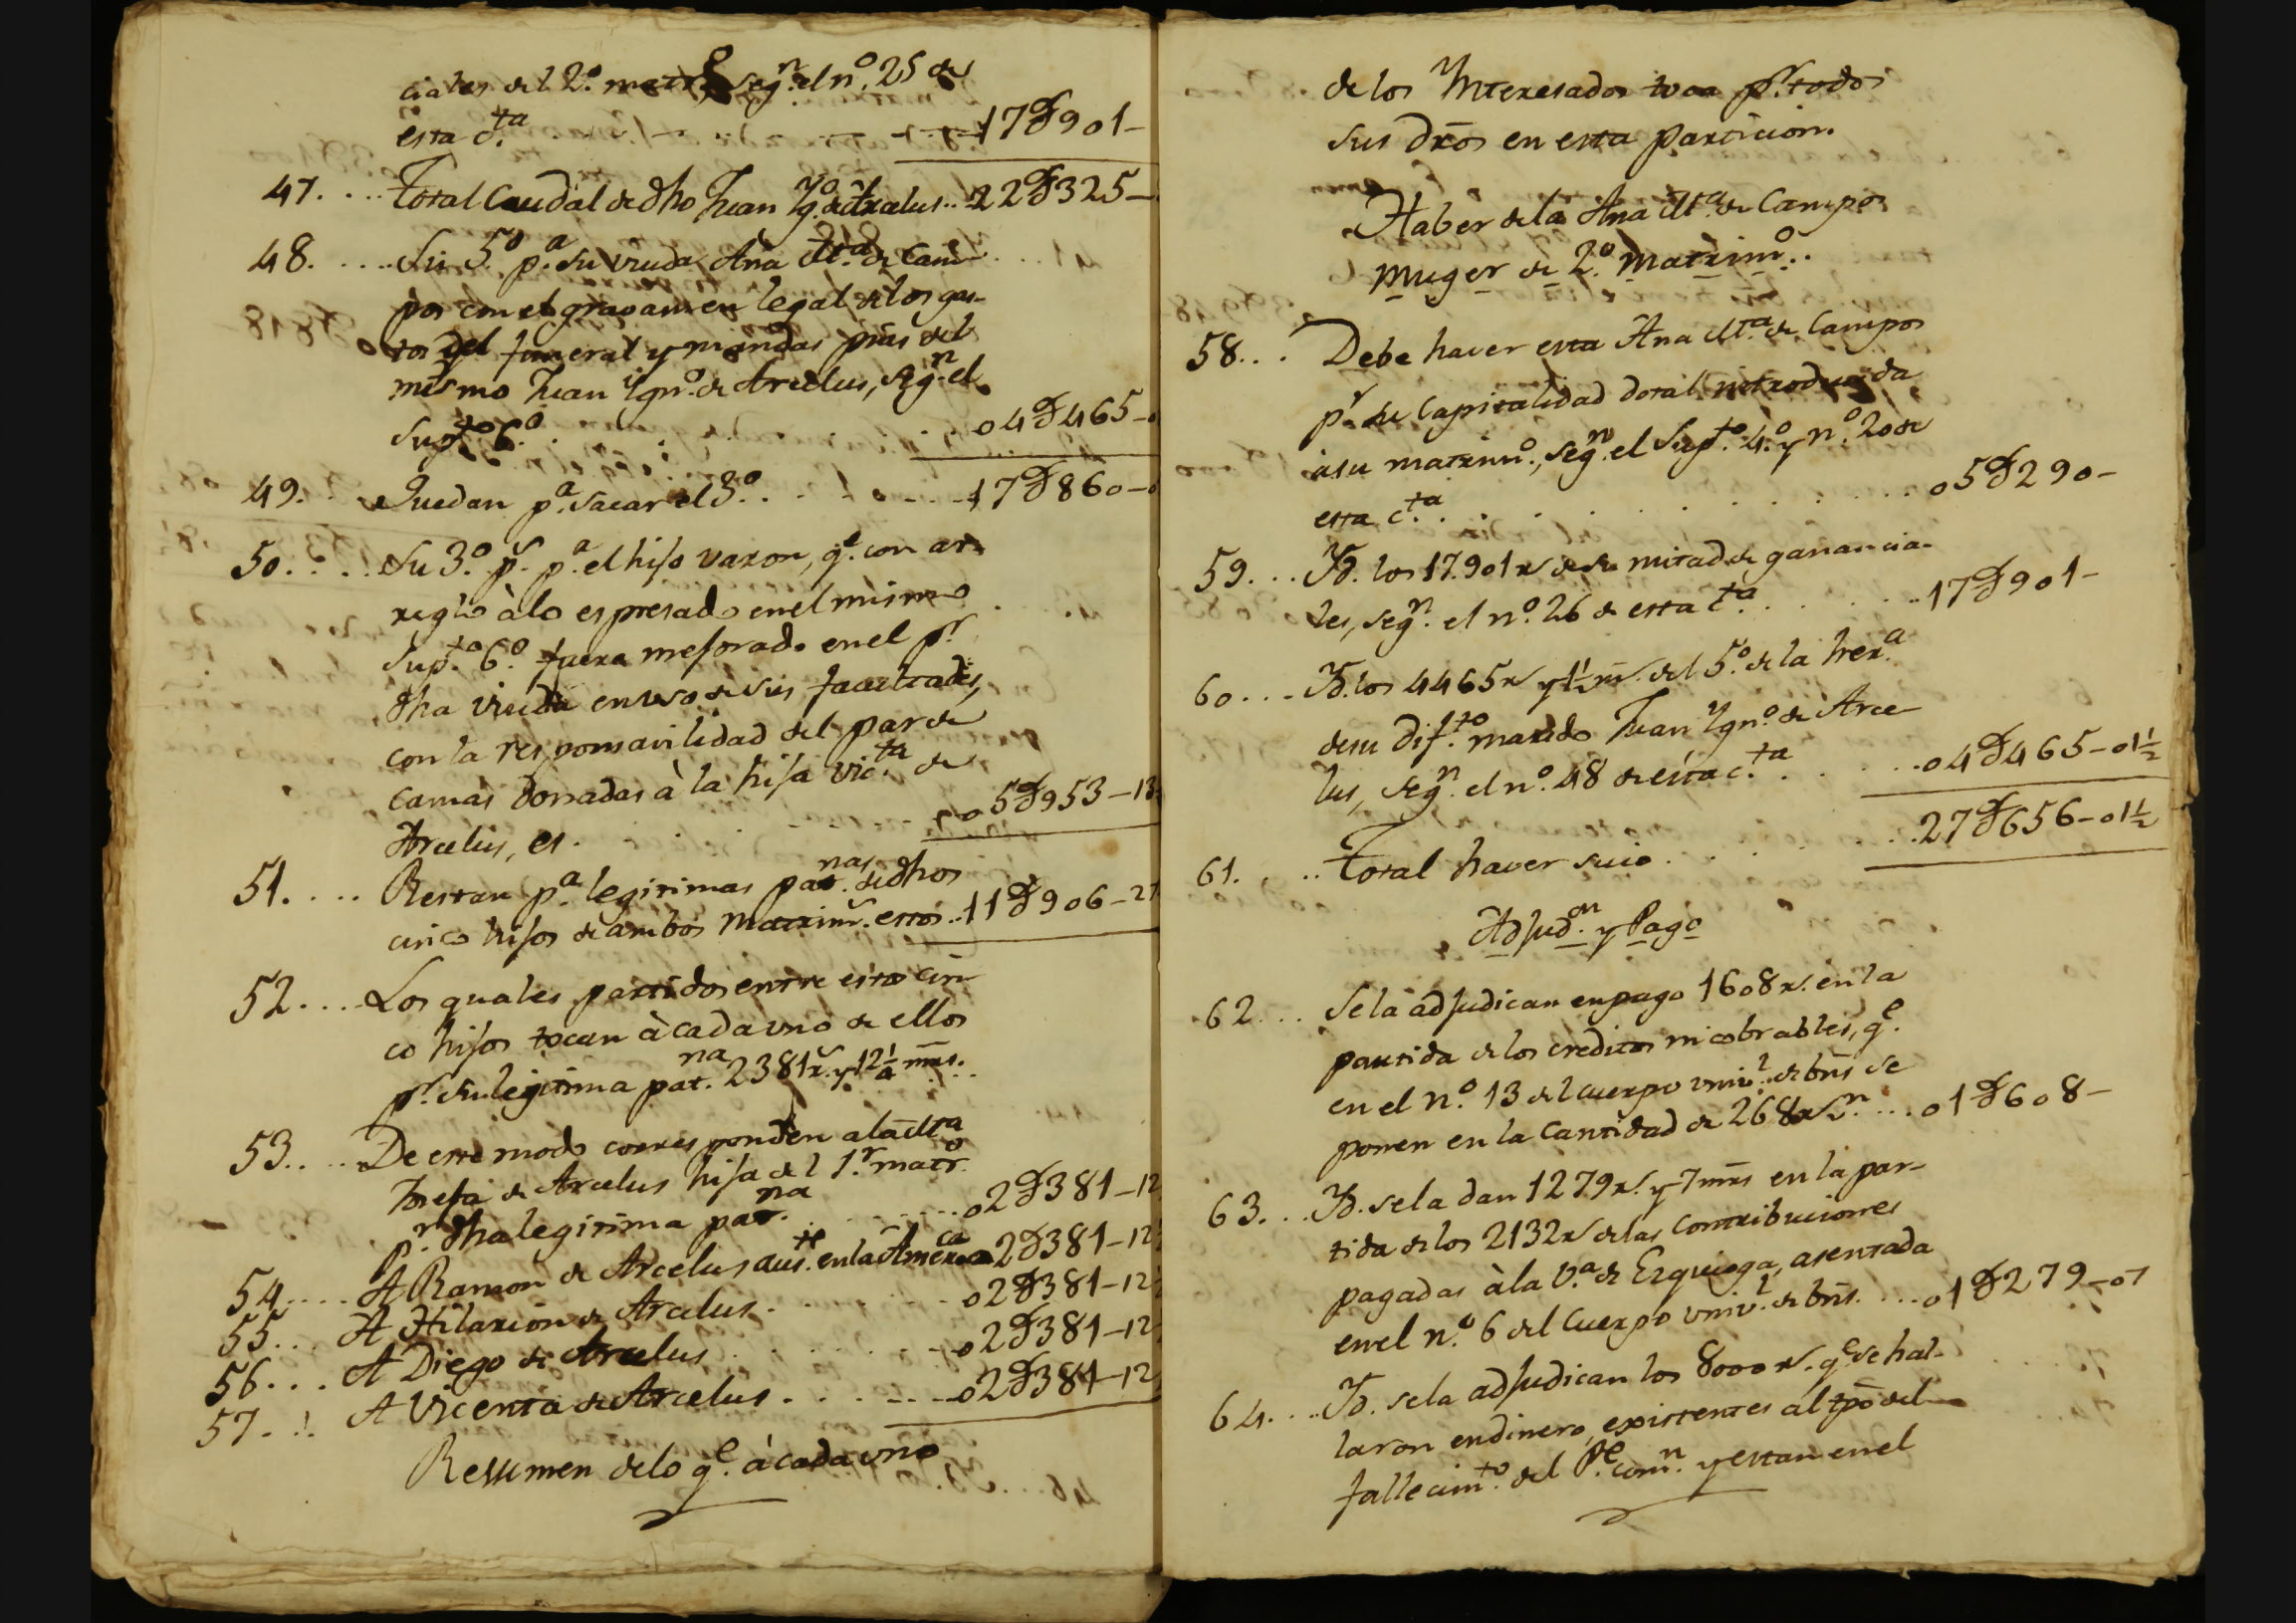 ciales del 2.º matr.º seg.n el n.º 25 de
esta c.ta 17D901-
47. ... Total Caudal de dho Juan Yg.º de Arcelus .. 22D325-
48. ... Su 5.º p.a su viuda Ana M.a de Cam-
pos con el gravamen legal de los gas-
tos del funeral y mandas pias del
mismo Juan Ygn.º de Arcelus, seg.n el
Sup.to 6.º . . . . 04D465-0
49. . . Quedan p.a sacar el 3.º . . . . 17D860-0
50. . . . Su 3.º p.r p.a el hijo varon, q.e con ar-
reglo à lo espresado en el mismo
Sup.to 6.º fuera mejorado en el p.r
dha viuda en uso de sus facultades,
con la responsavilidad del par de
camas donadas à la hija Vic.ta de
Arcelus, es . . . . 05D953-13
51. ... Restan p.a legitimas pat.nas de dhos
cinco hijos de ambos Matrim.s estos .. 11D906-21
52. ... Los quales partidos entre estos cin-
co hijos tocan à cada uno de ellos
p.r su legitima pat.na 2381 r.s y 12½ mrs.
53. ... De este modo corresponden a la M.a
Josefa de Arcelus hija del 1.r matr.º
p.r dha legitima pat.na . . . . 02D381-12
54. ... A Ramon de Arcelus aus.te en la America 02D381-12
55. ... A Hilarion de Arcelus . . . . 02D381-12
56. ... A Diego de Arcelus . . . . 02D381-12
57. .. A Vicenta de Arcelus . . . . 02D381-12
Resumen de lo q.e à cada uno
de los Ynteresados toca p.r todos
sus dros en esta particion.
Haber de la Ana M.a de Campos
muger de 2.º matrim.º.
58. . . Debe haver esta Ana M.a de Campos
p.r su Capitalidad dotal introducida
à su matrim.º, seg.n el Sup.to 4.º y n.º 20 de
esta c.ta . . . . 05D290-
59. . . Yd. los 17.901 r.s de su mitad de ganancia-
les, seg.n el n.º 26 de esta c.ta . . . . 17D901-
60. . . Yd. los 4465 r.s y 1½ m.s del 5.º de la her.a
de su dif.to marido Juan Ygn.º de Arce-
lus, seg.n el n.º 48 de esta c.ta . . . . 04D465-01½
61. . . . Total haver suio . . . . 27D656-01½
Adjud.on y Pago
62. . . Se la adjudican en pago 1608 r.s en la
partida de los creditos incobrables, q.e
en el n.º 13 del cuerpo univ.l de bns se
ponen en la cantidad de 268 r.s v.n ... 01D608-
63. . . Yd. se la dan 1279 r.s y 7 mrs en la par-
tida de los 2132 r.s de las Contribuciones
pagadas à la V.a de Ezquioga, asentada
en el n.º 6 del Cuerpo univ.l de bns. ... 01D279-07
64. . . Yd. se la adjudican los 8000 r.s q.e se hal-
laron en dinero, existentes al tpo del
fallecim.to del P.e com.n y estan en el